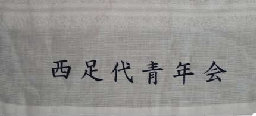 西足代青年会